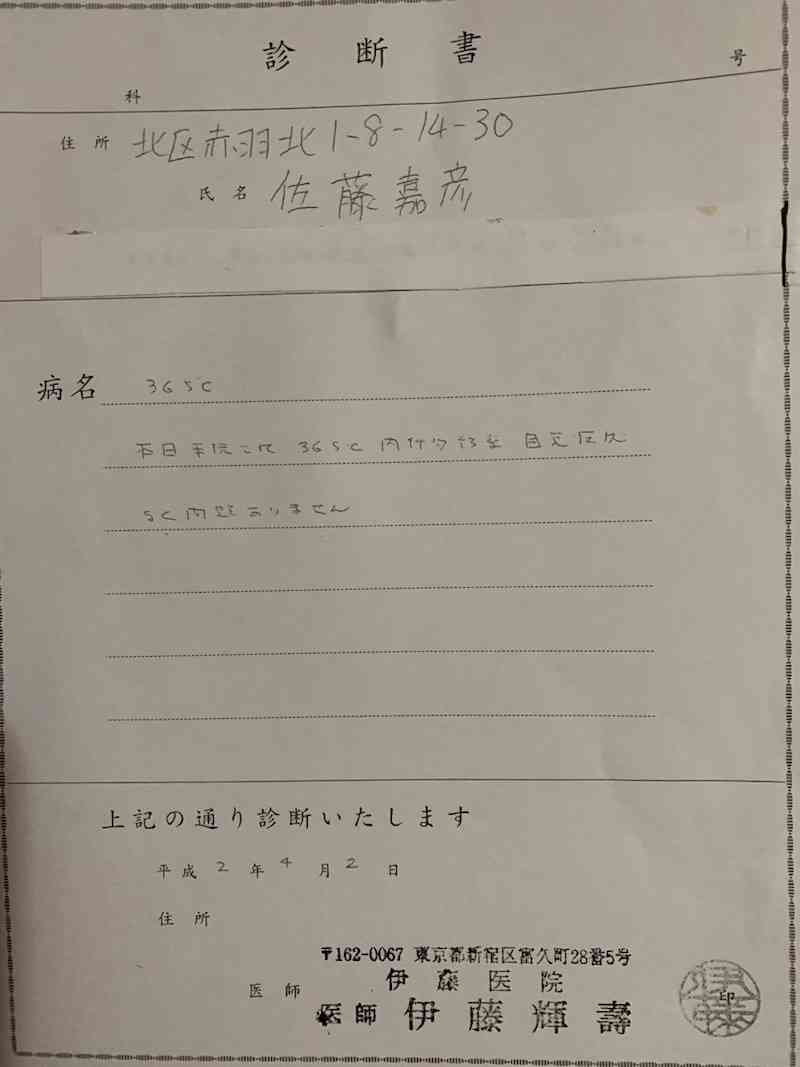 診断書
号
科
住所 北区赤羽北1-8-14-30
氏名 佐藤嘉彦
病名 365c
本日 365c
ありません
上記の通り診断いたします
平成2年4月2日
住所
〒162-0067 東京都新宿区富久町28番5号
伊藤医院
医師
医師 伊藤輝壽
伊藤 印